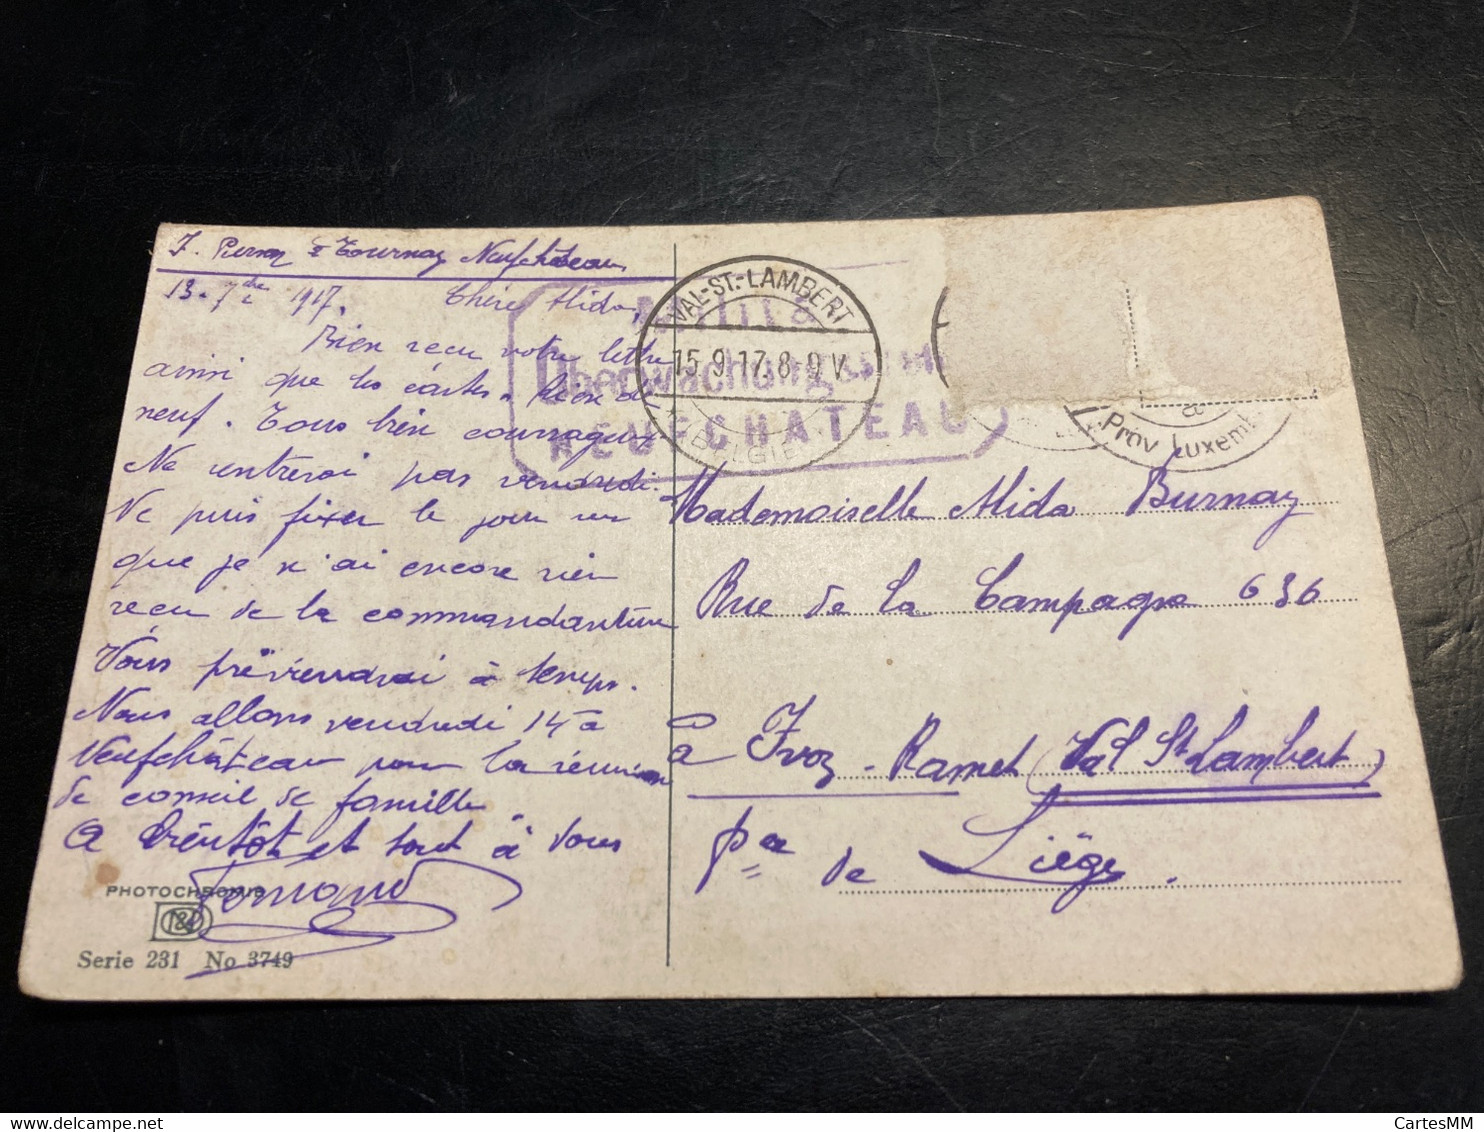 à Tournay Neufchâteau
13-7bre 1917. Chère Alida,
Bien reçu votre lettre
ainsi que les cartes. Rien de
neuf. Tous bien courageux.
Ne rentrerai pas vendredi.
Ne puis fixer le jour vu
que je n'ai encore rien
reçu de la commandanture
Vous préviendrai à temps.
Nous allons vendredi 14 à
Neufchâteau pour la réunion
de conseil de famille
A bientôt et tout à vous
Fernand
PHOTOCHROMIE
Serie 231 No 3749
VAL-ST.-LAMBERT
15.9.17.8-9 V.
BELGIEN
Überwachungsstelle
NEUFCHATEAU
Prov Luxemb
Mademoiselle Alida Burnay
Rue de la Campagne 636
à Ivoz-Ramet (Val St Lambert)
pce de Liège.
CartesMM